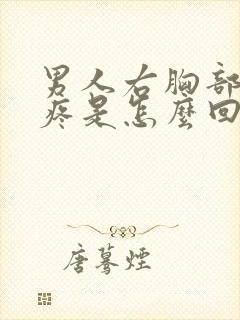 男人右胸部
疼是怎麼回
唐驀煙